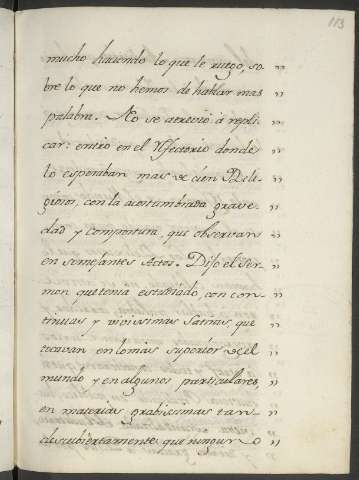 113
mucho haciendo lo que le ruego, so-
bre lo que no hemos de hablar mas
palabra. No se atrevió á repli
car: entro en el Refectorio donde
lo esperaban mas de cien Reli-
giosos, con la acostumbrada grave-
dad y compostura, que observan
en semejantes Actos. Dijo el Ser-
mon que tenia estudiado, con con-
tinuas y vivissimas Satiras, que
tocavan en lo mas superior de el
mundo y en algunos particulares,
en materias grabissimas tan-
descubiertamente que ningun